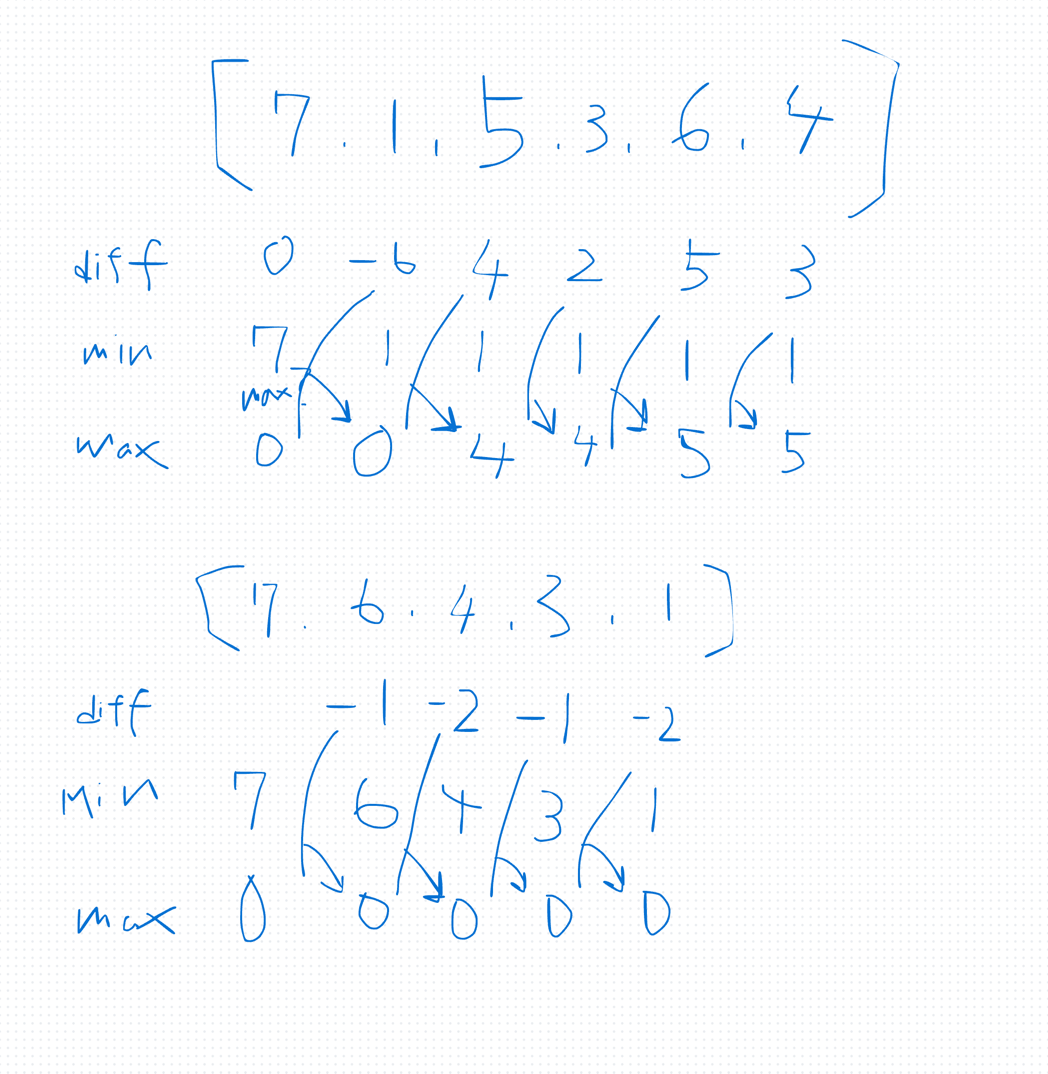 [ 7 . 1 , 5 . 3 , 6 . 4 ]
diff 0 -6 4 2 5 3
min 7 1 1 1 1 1
max
max 0 0 4 4 5 5
[ 7 . 6 . 4 . 3 . 1 ]
diff -1 -2 -1 -2
Min 7 6 4 3 1
max 0 0 0 0 0